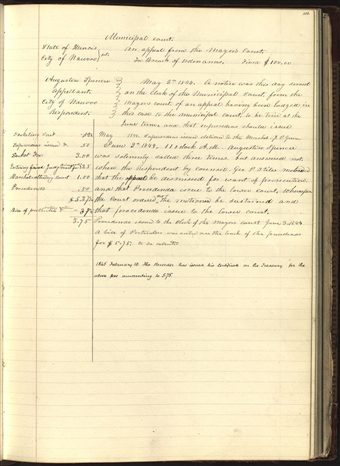 Municipal Court
State of Illinois
City of Nauvoo
An appeal from the Mayor's Court
In Breach of Ordinances Fine $100.00
Augustine Spencer
appellant
vs
City of Nauvoo
Respondent
May 2nd 1844. A notice was this day served
on the Clerk of the Municipal Court from the
Mayors Court of an appeal having been lodged in
this case to the municipal court, to be tried at the
June term and that supersedeas should issue
May
Supersedeas issued
to the Marshal J. P. Greene
June 3rd 1844, 11 o'clock A.M. Augustine Spencer
was solemnly called three times but answered not
when the Respondent by counsel Geo P. Stiles motioned
that the appeal be dismissed for want of prosecution
and that Procedendo issue to the lower court. Whereupon
the Court ordered the motion be sustained and
that procedendo issue to the lower court.
Procedendo issued to the Clerk of the Mayors Court June 3, 1844
A bill of
for $5.
Docketing Suit
Supersedeas issued &c .50
Docket Fee 3.00
Marshal attending Court 1.00
Procedendo .50
3.75
1845 February 10 The Recorder has issued his certificate on the Treasury for the
above fees amounting to 3.75